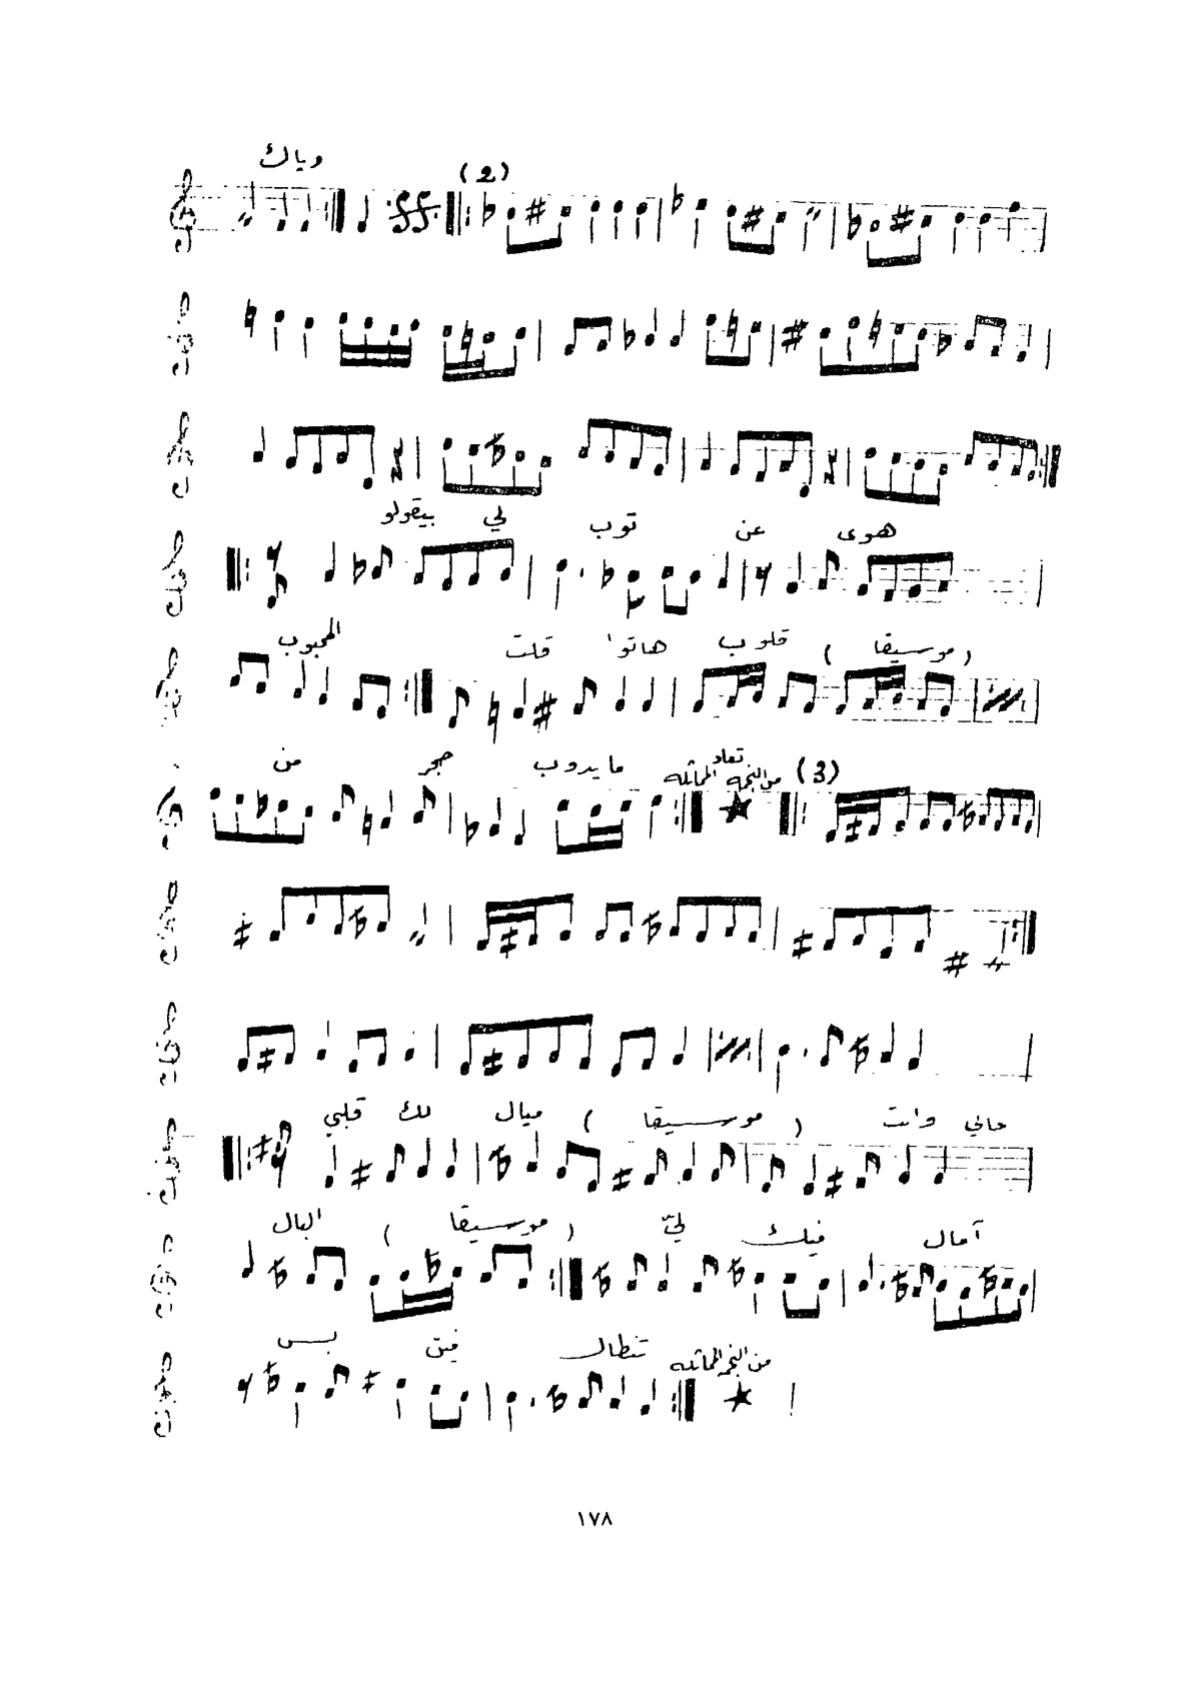 وياك
(2)
بيقولو لي توب عن هوى
المحبوب قلت هاتوا قلوب ( موسيقا )
من حجر مايدوب تعاد من النجمة المماثله (3)
قلبي لك ميال ( موسيقا ) وانت خالي
البال ( موسيقا ) ليّ فيك آمال
بس فين تنطال من النجمة المماثله
١٧٨